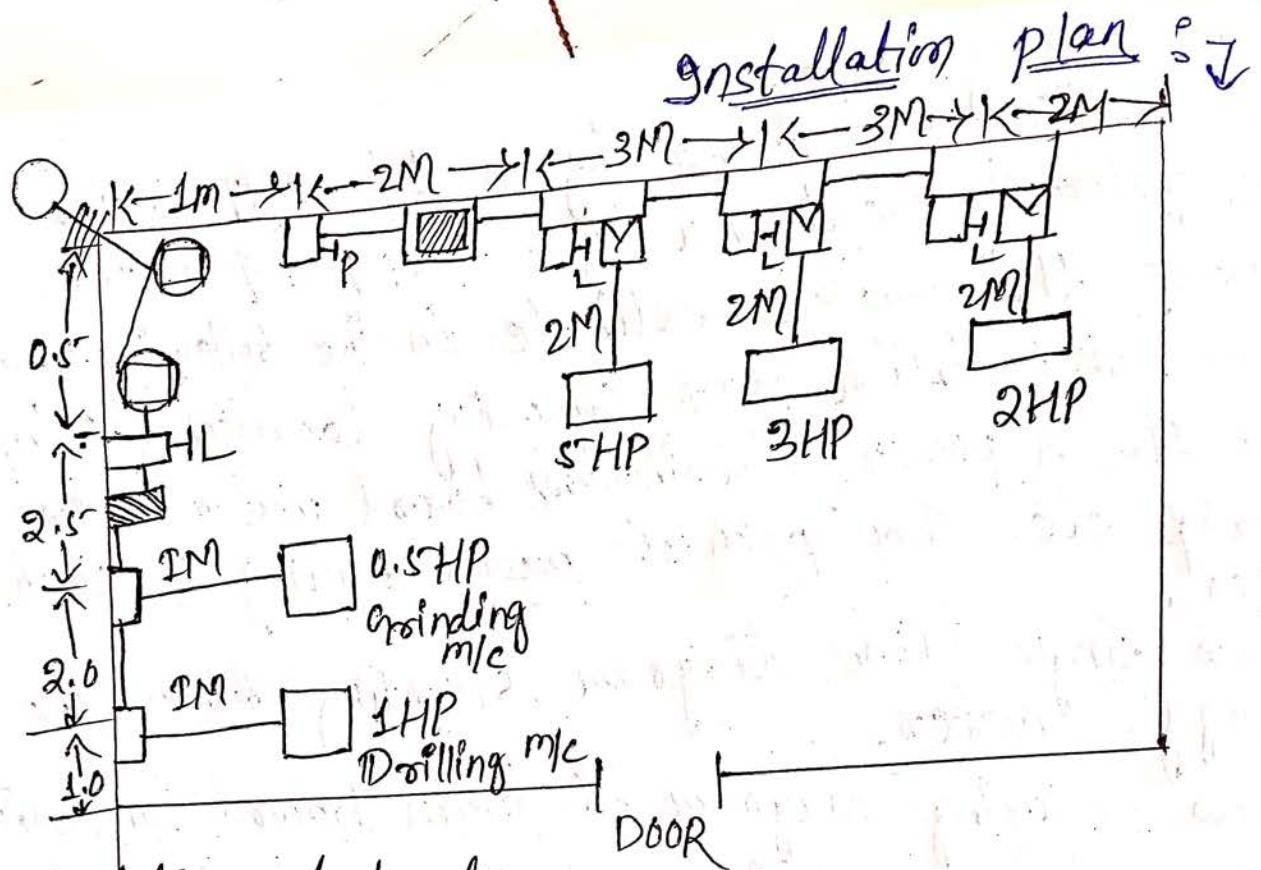 Installation plan :↓
1m 2M 3M 3M 2M
HP
HL HL HL
2M 2M 2M
0.5
5HP 3HP 2HP
HL
2.5
1M 0.5HP
Grinding
m/c
2.0
1M 1HP
Drilling m/c
1.0
DOOR